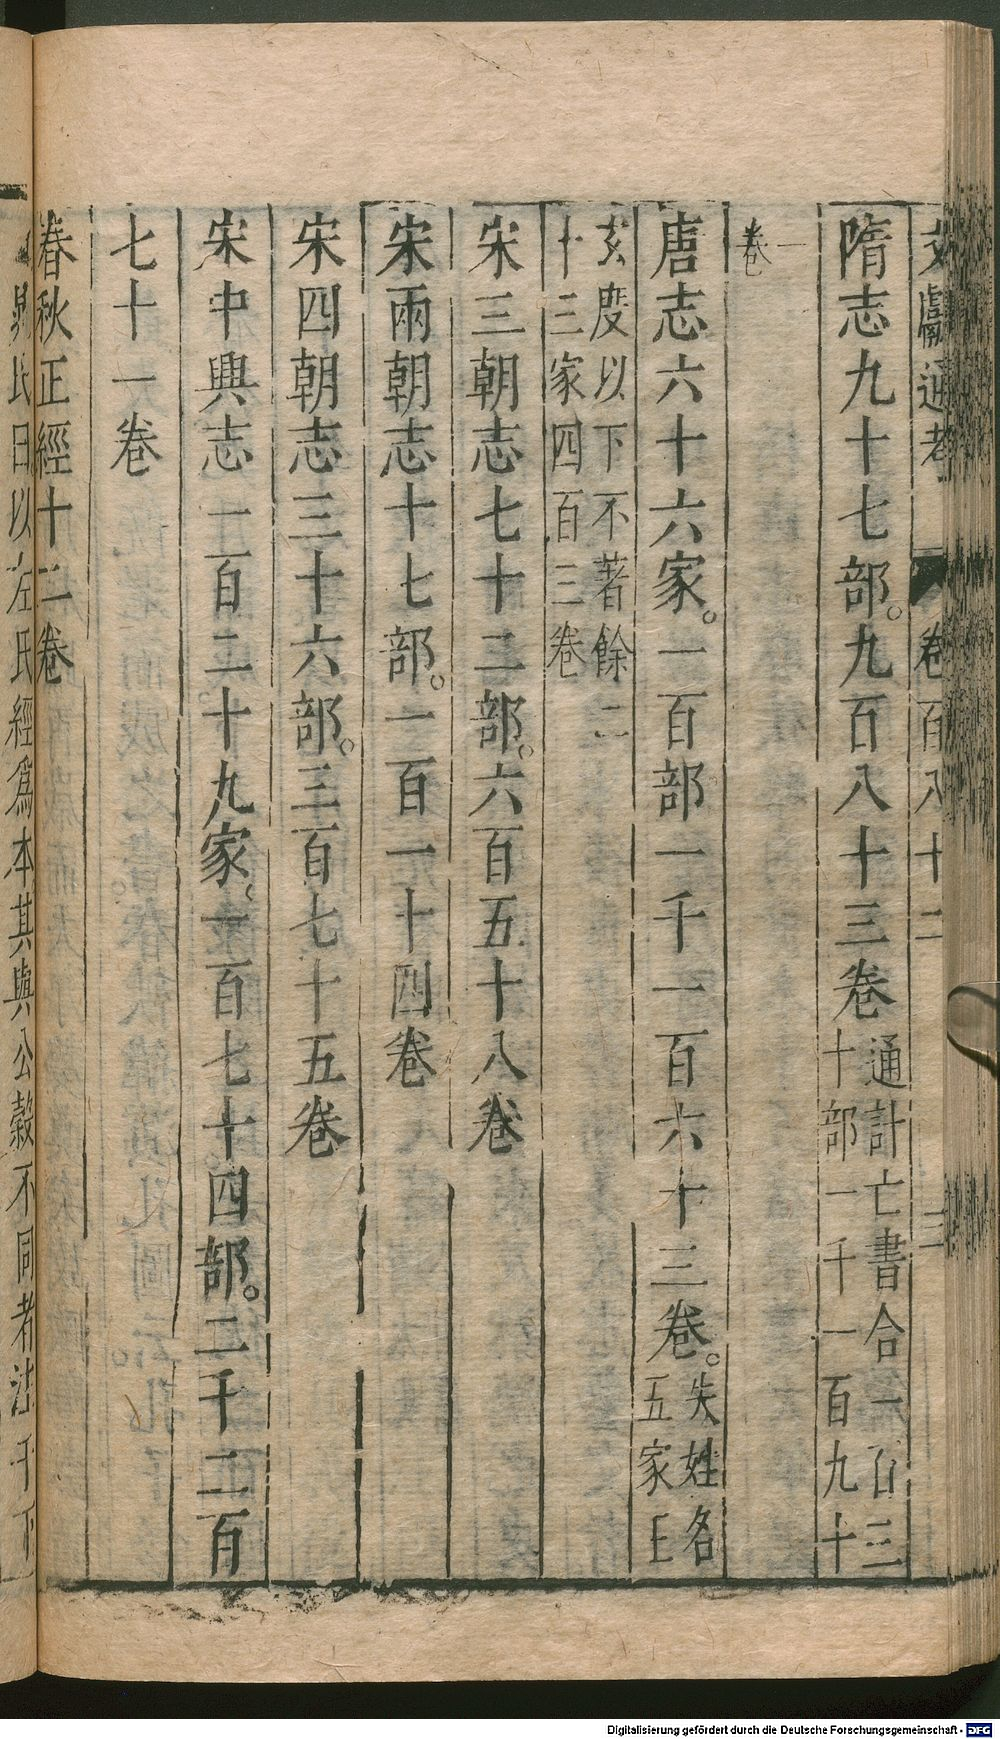 文獻通考 卷百八十二 三
隋志九十七部。九百八十三卷
通計亡書合一百三
十部一千一百九十
一
卷
唐志六十六家。一百部一千一百六十三卷。
失姓名
五家王
玄度以下不著餘二
十三家四百三卷
宋三朝志七十二部。六百五十八卷
宋兩朝志十七部。一百一十四卷
宋四朝志三十六部。三百七十五卷
宋中興志一百二十九家。一百七十四部。二千二百
七十一卷
春秋正經十二卷
氏曰以左氏經爲本其與公穀不同者注于下
Digitalisierung gefördert durch die Deutsche Forschungsgemeinschaft - DFG